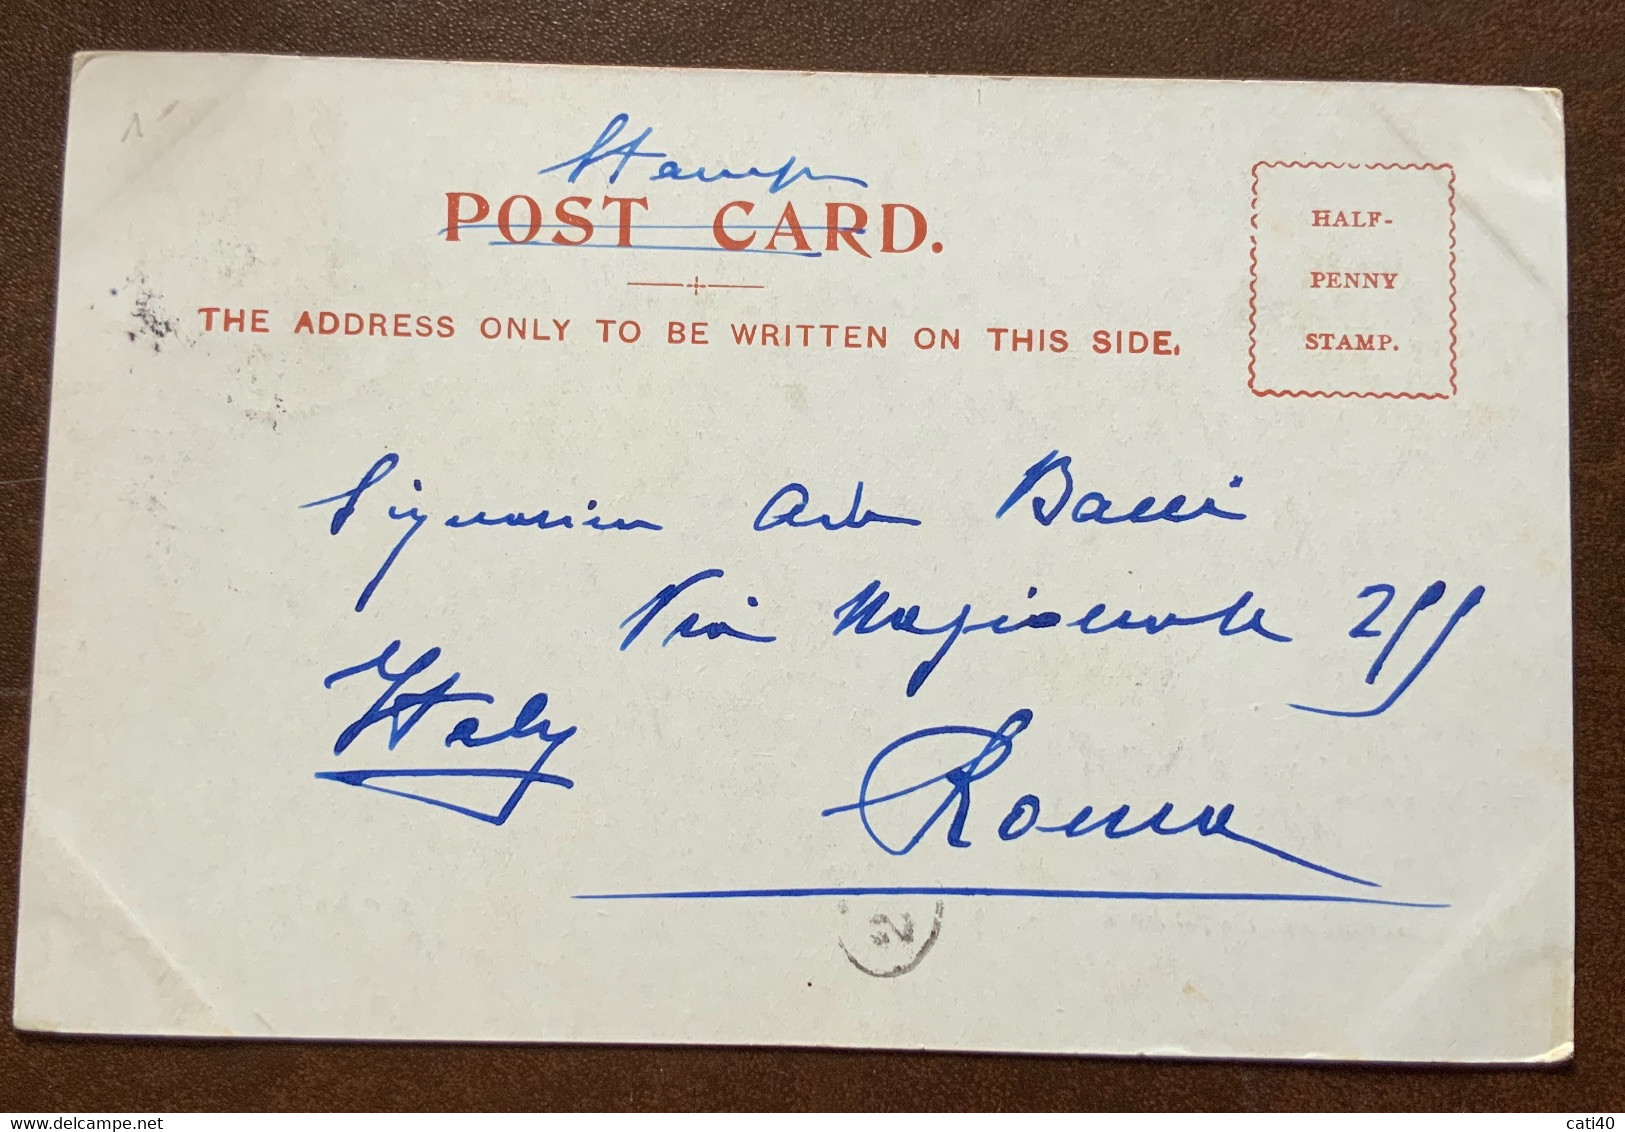 Stamp
POST CARD.
THE ADDRESS ONLY TO BE WRITTEN ON THIS SIDE.
HALF-
PENNY
STAMP.
Signorina Ada Bacci
Via Nazionale 255
Italy
Roma
2
delcampe.net
cati40